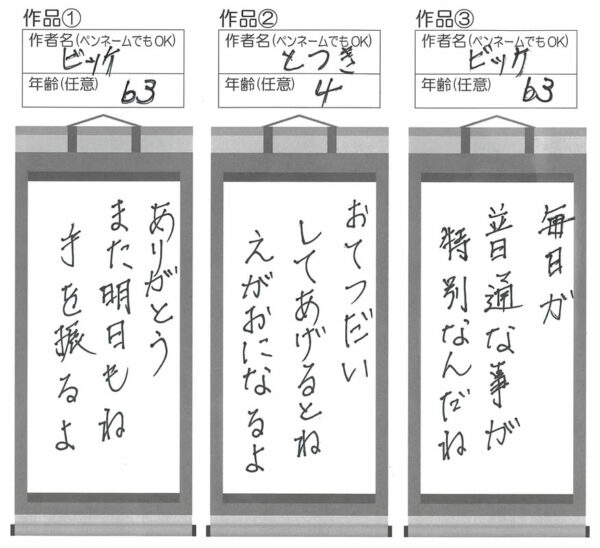 作品①
作者名(ペンネームでもOK)
ビッケ
年齢(任意) 63
ありがとう
また明日もね
手を振るよ
作品②
作者名(ペンネームでもOK)
とつき
年齢(任意) 4
おてつだい
してあげるとね
えがおになるよ
作品③
作者名(ペンネームでもOK)
ビッケ
年齢(任意) 63
毎日が
普通な事が
特別なんだね